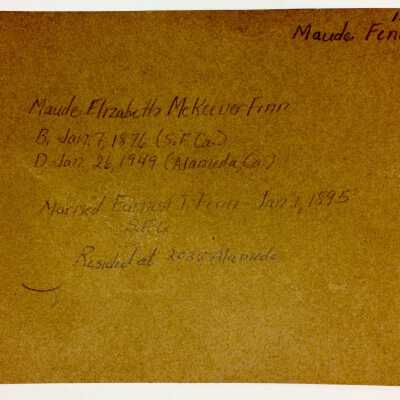 Maude Fin
Maude Elizabeth McKeever Finn
B. Jan. 7, 1876 (S.F. Ca.)
D. Jan. 26, 1949 (Alameda, Ca.)
Married Earnest T. Finn Jan. 1, 1895
Resided at Alameda